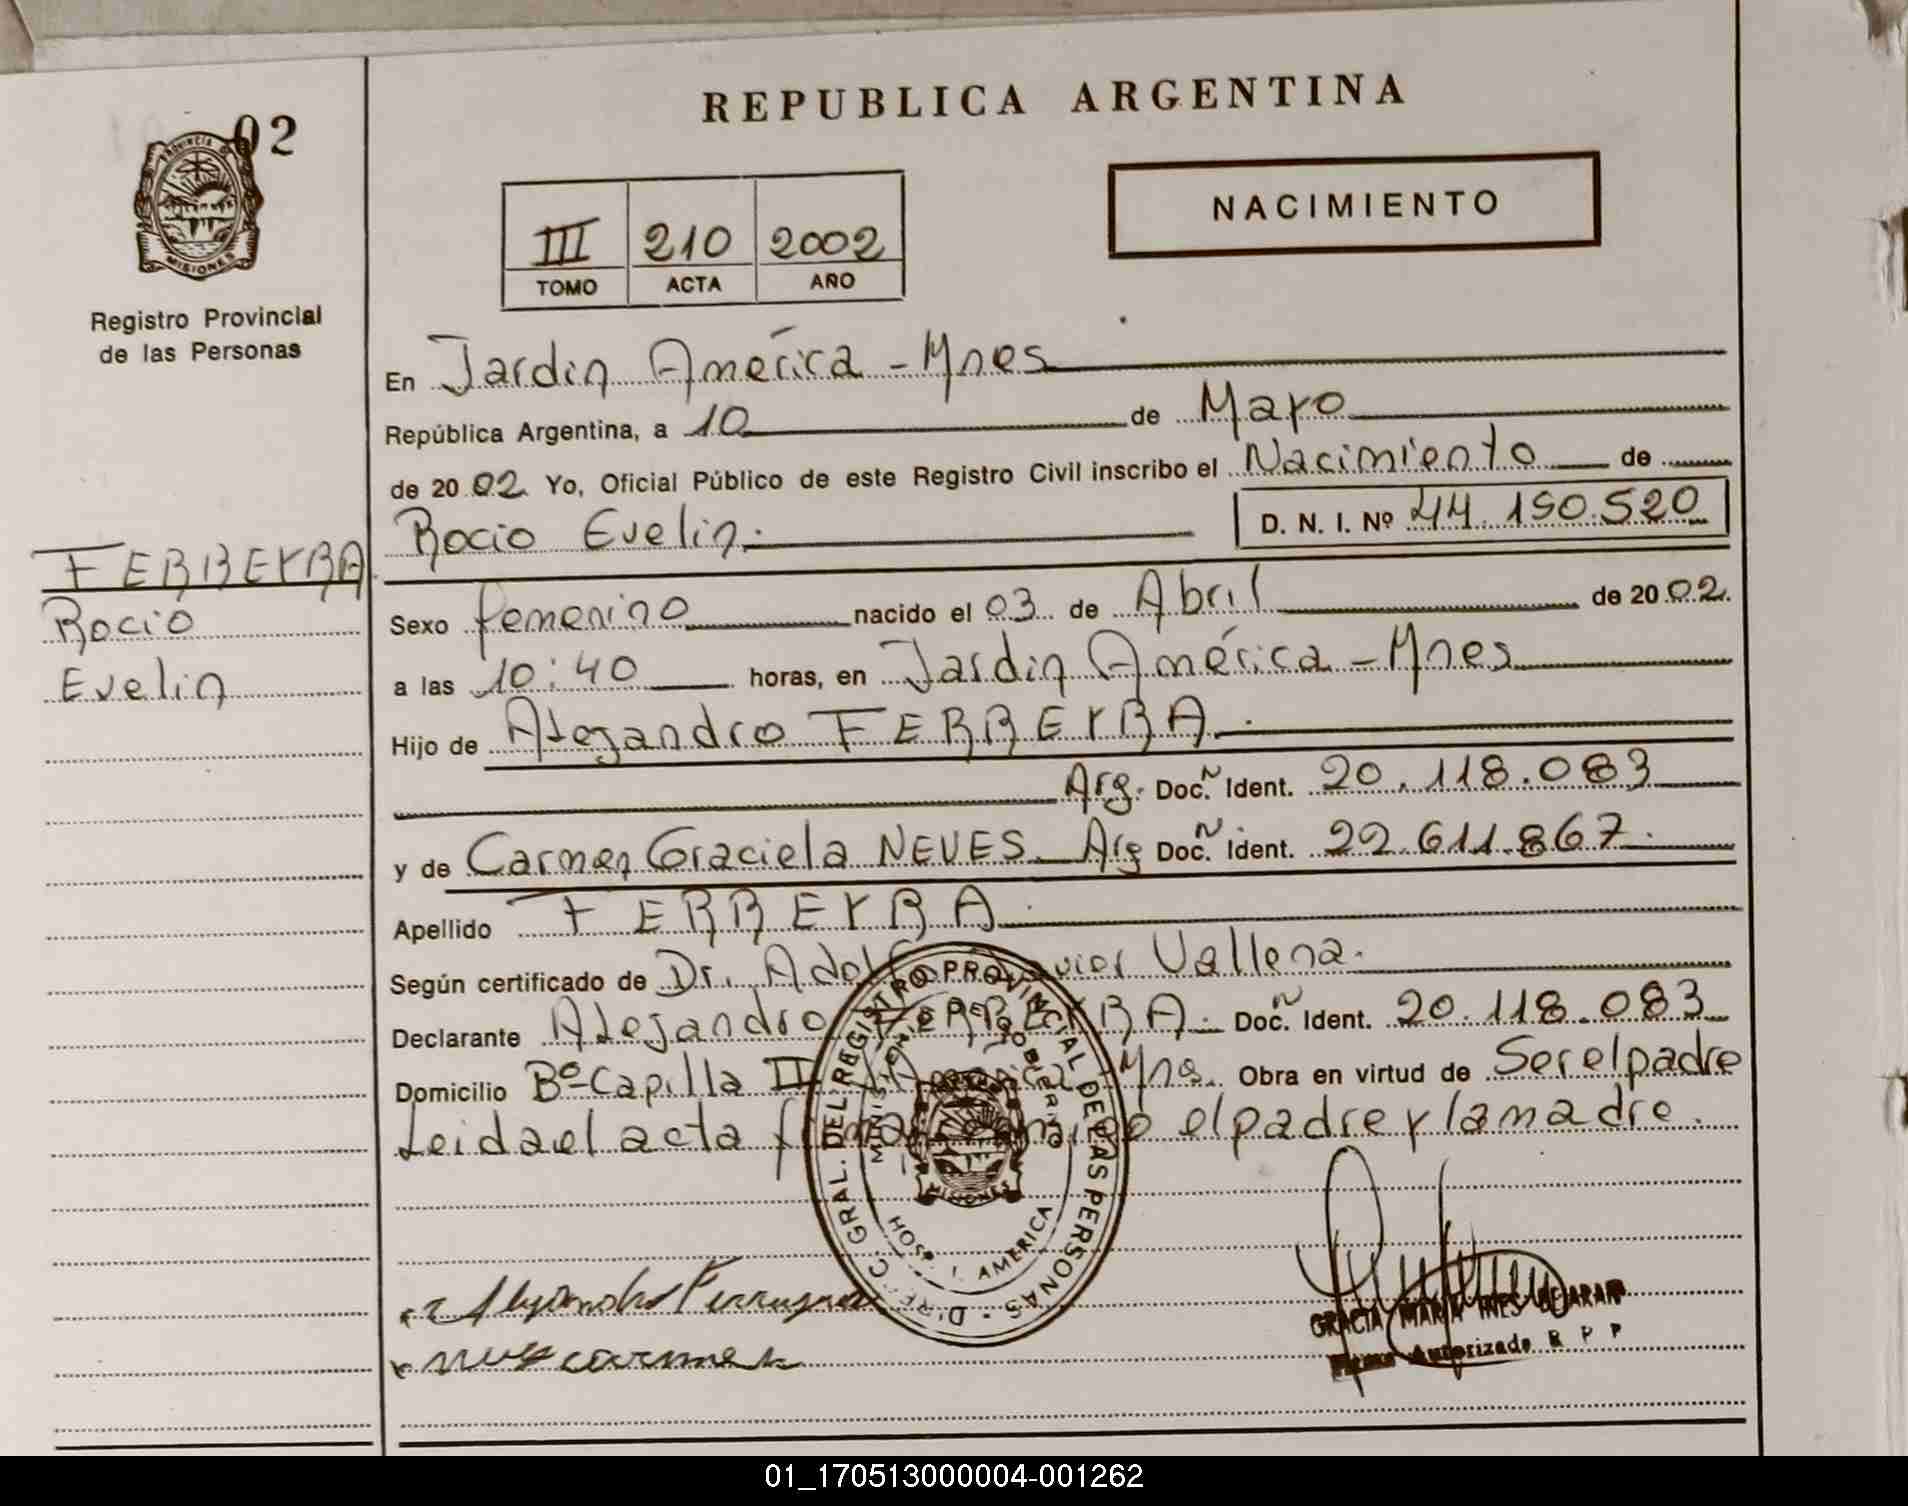 REPUBLICA ARGENTINA
02
PROVINCIA DE
MISIONES
Registro Provincial
de las Personas
III 210 2002
TOMO ACTA AÑO
NACIMIENTO
En Jardin América - Mnes
República Argentina, a 10 de Mayo
de 2002 Yo, Oficial Público de este Registro Civil inscribo el Nacimiento de
Rocio Evelin. D. N. I. Nº 44.150.520
FERREYRA
Rocio
Evelin
Sexo femenino nacido el 03 de Abril de 2002.
a las 10:40 horas, en Jardin América - Mnes
Hijo de Alejandro FERREYRA.
Arg. Doc. Ñ Ident. 20.118.083
y de Carmen Graciela NEVES Arg Doc. Ñ Ident. 22.611.867.
Apellido FERREYRA.
Según certificado de Dr. Adolfo Javier Vallena.
Declarante Alejandro FERREYRA. Doc. Ñ Ident. 20.118.083
Domicilio Bº Capilla II América Mns. Obra en virtud de Ser el padre
Leida el acta firman conmigo el padre y la madre.
DIREC. GRAL. DEL REGISTRO PROVINCIAL DE LAS PERSONAS
MISIONES
HOSP. J. AMERICA
Alejandro Ferreyra
neves carmen
GRACIA MARIA INES BEJARANO
Firma Autorizada R P P
01_170513000004-001262